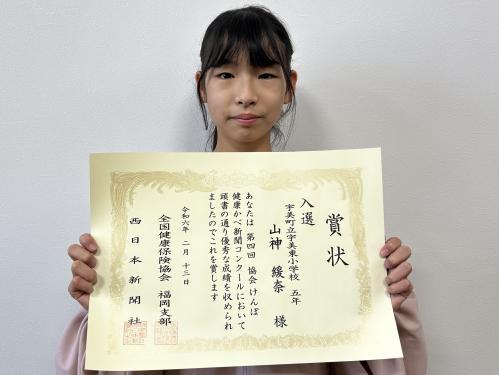 賞状
入選
宇美町立宇美東小学校 五年
山神 緩奈 様
あなたは 第四回 協会けんぽ
健康かべ新聞コンクールにおいて
頭書の通り優秀な成績を収められ
ましたのでこれを賞します
令和六年 二月 十三日
全国健康保険協会 福岡支部
西日本新聞社